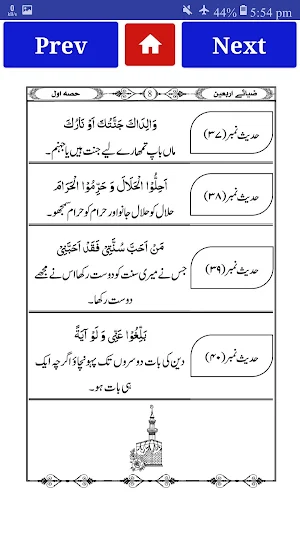 0
KB/s
44%
5:54 pm
Prev
Next
ضیائے اربعین
8
حصہ اول
حدیث نمبر (۳۷)
وَالِدَاكَ جَنَّتُكَ اَوْ نَارُكَ
ماں باپ تمھارے لیے جنت ہیں یا جہنم۔
حدیث نمبر (۳۸)
اَحِلُّوْا الْحَلَالَ وَ حَرِّمُوْا الْحَرَامَ
حلال کو حلال جانو اور حرام کو حرام سمجھو۔
حدیث نمبر (۳۹)
مَنْ اَحَبَّ سُنَّتِیْ فَقَدْ اَحَبَّنِیْ
جس نے میری سنت کو دوست رکھا اس نے مجھے
دوست رکھا۔
حدیث نمبر (۴۰)
بَلِّغُوْا عَنِّی وَ لَوْ آيَةً
دین کی بات دوسروں تک پہونچاؤ اگرچہ ایک
ہی بات ہو۔